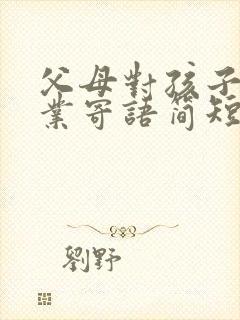 父母對孩子
業寄語简短
劉野